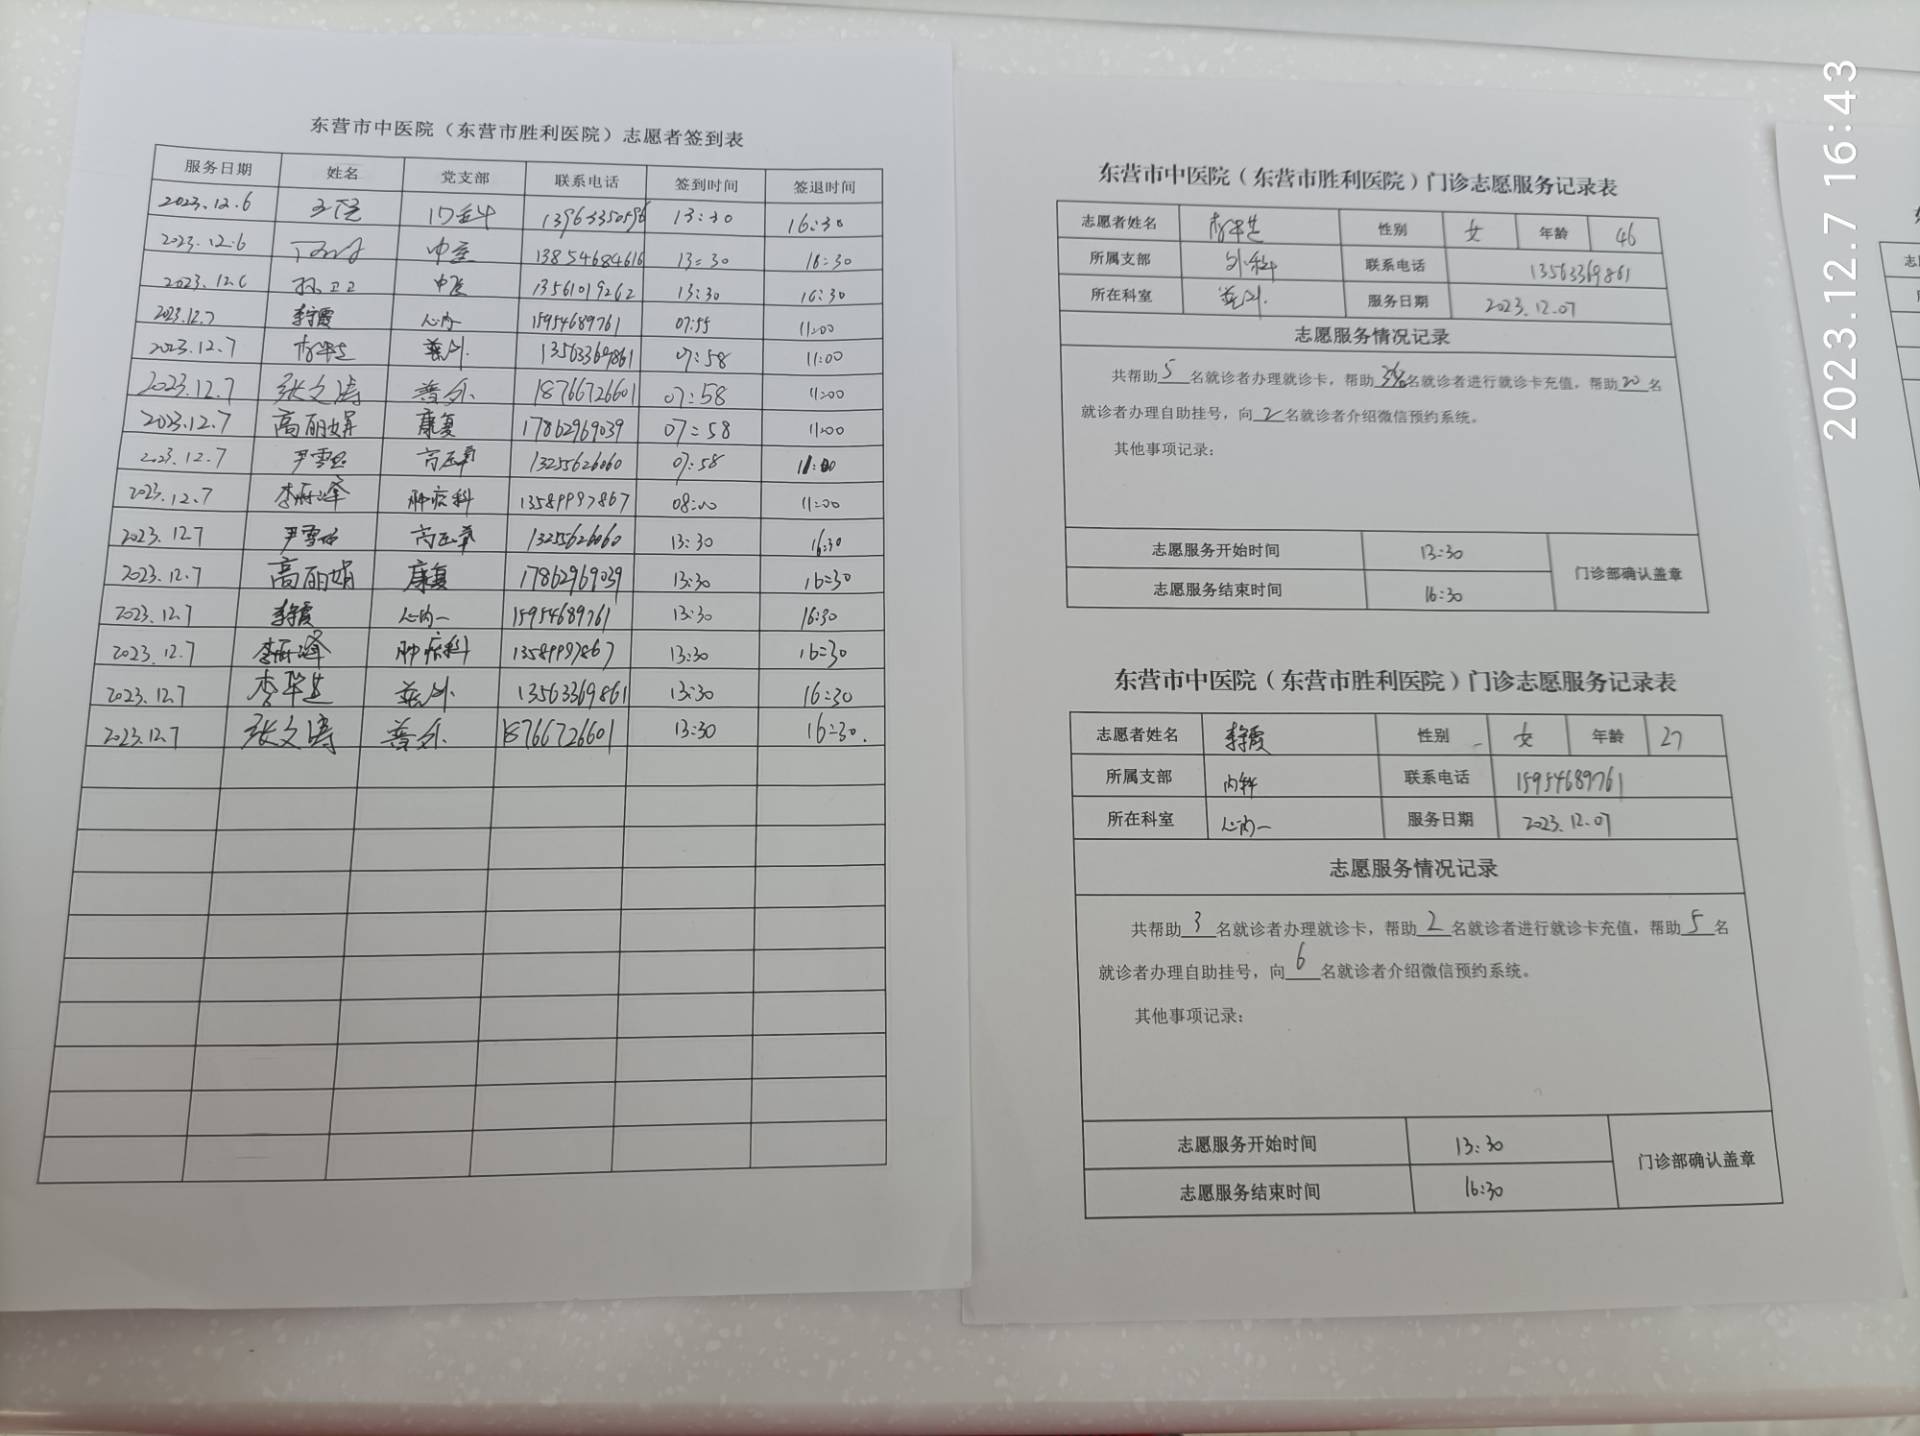 东营市中医院（东营市胜利医院）志愿者签到表
服务日期 姓名 党支部 联系电话 签到时间 签退时间
2023.12.6 13963350596 13:30 16:30
2023.12.6 中医 13854684616 13:30 16:30
2023.12.6 孙卫卫 中医 13561019262 13:30 16:30
2023.12.7 心内一 15954689761 07:55 11:00
2023.12.7 普外 13563369861 07:58 11:00
2023.12.7 张文涛 普外 18766726601 07:58 11:00
2023.12.7 高丽娟 康复 17862969039 07:58 11:00
2023.12.7 13255626060 07:58 11:00
2023.12.7 肿瘤科 13589997867 08:00 11:00
2023.12.7 13255626060 13:30 16:30
2023.12.7 高丽娟 康复 17862969039 13:30 16:30
2023.12.7 心内一 15954689761 13:30 16:30
2023.12.7 肿瘤科 13589997867 13:30 16:30
2023.12.7 普外 13563369861 13:30 16:30
2023.12.7 张文涛 普外 18766726601 13:30 16:30.
东营市中医院（东营市胜利医院）门诊志愿服务记录表
志愿者姓名 性别 女 年龄 46
所属支部 外科 联系电话 13563369861
所在科室 普外. 服务日期 2023.12.07
志愿服务情况记录
共帮助5名就诊者办理就诊卡，帮助名就诊者进行就诊卡充值，帮助20名
就诊者办理自助挂号，向2名就诊者介绍微信预约系统。
其他事项记录：
志愿服务开始时间 13:30
门诊部确认盖章
志愿服务结束时间 16:30
东营市中医院（东营市胜利医院）门诊志愿服务记录表
志愿者姓名 性别 女 年龄 27
所属支部 内科 联系电话 15954689761
所在科室 心内一 服务日期 2023.12.07
志愿服务情况记录
共帮助3名就诊者办理就诊卡，帮助2名就诊者进行就诊卡充值，帮助5名
就诊者办理自助挂号，向6名就诊者介绍微信预约系统。
其他事项记录：
志愿服务开始时间 13:30
门诊部确认盖章
志愿服务结束时间 16:30
2023.12.7 16:43